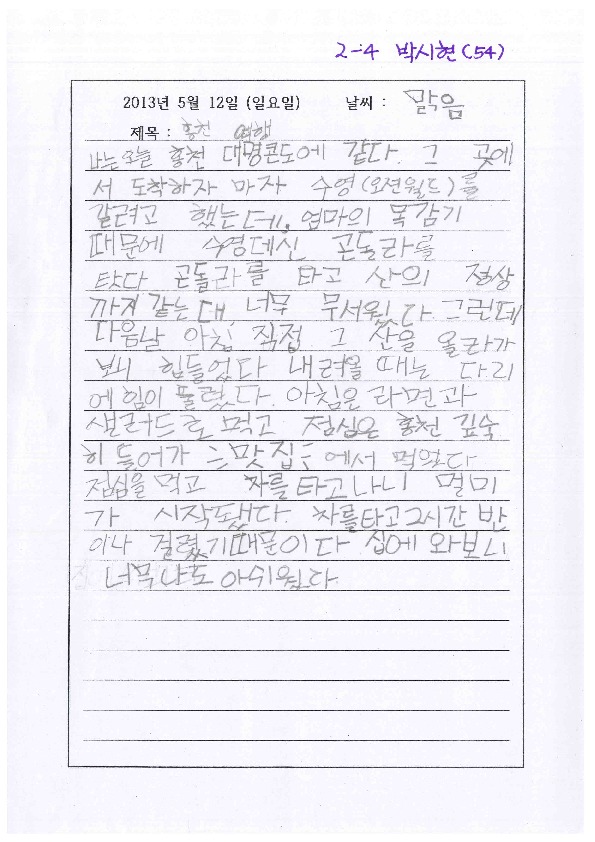 2-4 박시현(54)
2013년 5월 12일 (일요일) 날씨 : 맑음
제목 : 홍천 여행
나는 오늘 홍천 대명콘도에 같다. 그 곳에
서 도착하자 마자 수영(오션월드)를
갈려고 했는데, 엄마의 목감기
때문에 수영데신 곤돌라를
탓다 곤돌라를 타고 산의 정상
까지 같는대, 너무 무서웠다. 그런데
다음날 아침 직접 그 산을 올라가
보니 힘들었다 내려올 때는 다리
에 힘이 풀렸다. 아침은 라면과
샐러드로 먹고 점심은 홍천 깊숙
히 들어가 맛집 에서 먹었다
점심을 먹고 차를 타고나니 멀미
가 시작됐다. 차를타고 2시간 반
이나 걸렸기때문이다 집에 와보니
너무나도 아쉬웠다.